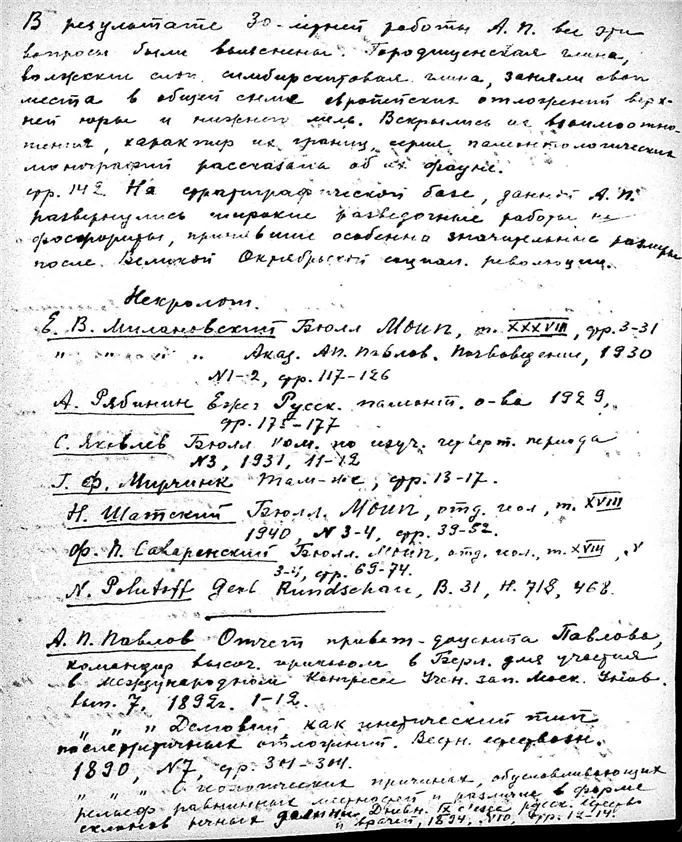 В результате 30-летней работы А. П. все эти
вопросы были выяснены. Городищенская глина,
волжские слои, симбирскитовая глина, заняли свои
места в общей схеме европейских отложений верх-
ней юры и нижнего мела. Вскрылись их взаимоотно-
шения, характер их границ, серия палеонтологических
монографий рассказала об их фауне.
стр. 142 На стратиграфической базе, данной А. П.
развернулись широкие разведочные работы на
фосфориты, принявшие особенно значительные размеры
после Великой Октябрьской социал. революции.
Некролог.
Е. В. Милановский Бюлл МОИП, т. XXXVIII, стр. 3-31
" " " " Акад. А.П. Павлов. Почвоведение, 1930
N1-2, стр. 117-126
А. Рябинин Ежег Русск. палеонт. о-ва 1929,
стр. 175-177
С. Яковлев Бюлл ком. по изуч. четверт. периода
N3, 1931, 11-12
Г. Ф. Мирчинк там-же, стр. 13-17.
Н. Шатский Бюлл. МОИП, отд. геол, т. XVIII
1940, N 3-4, стр. 39-52.
Ф. П. Саваренский Бюлл. МОИП, отд. геол., т. XVIII, N
3-4, стр. 69-74.
N. Polutoff Geol Rundschau, B. 31, H. 7/8, 468.
А. П. Павлов Отчет приват-доцента Павлова,
командир высоч. приказом в Берл. для участия
в международном Конгрессе Учен. зап. Моск. Унив.
вып. 7, 1892г. 1-12.
" " " Делювий как генетический тип
послетретичных отложений. Вестн. естествозн.
1890, N7, стр.
" " " причинах, обусловливающих
рельеф равнинных местностей и различие в форме
склонов речных долин. Дневн. IX съезда русск. естество
и врачей, 1894, N10, стр. 12-14.